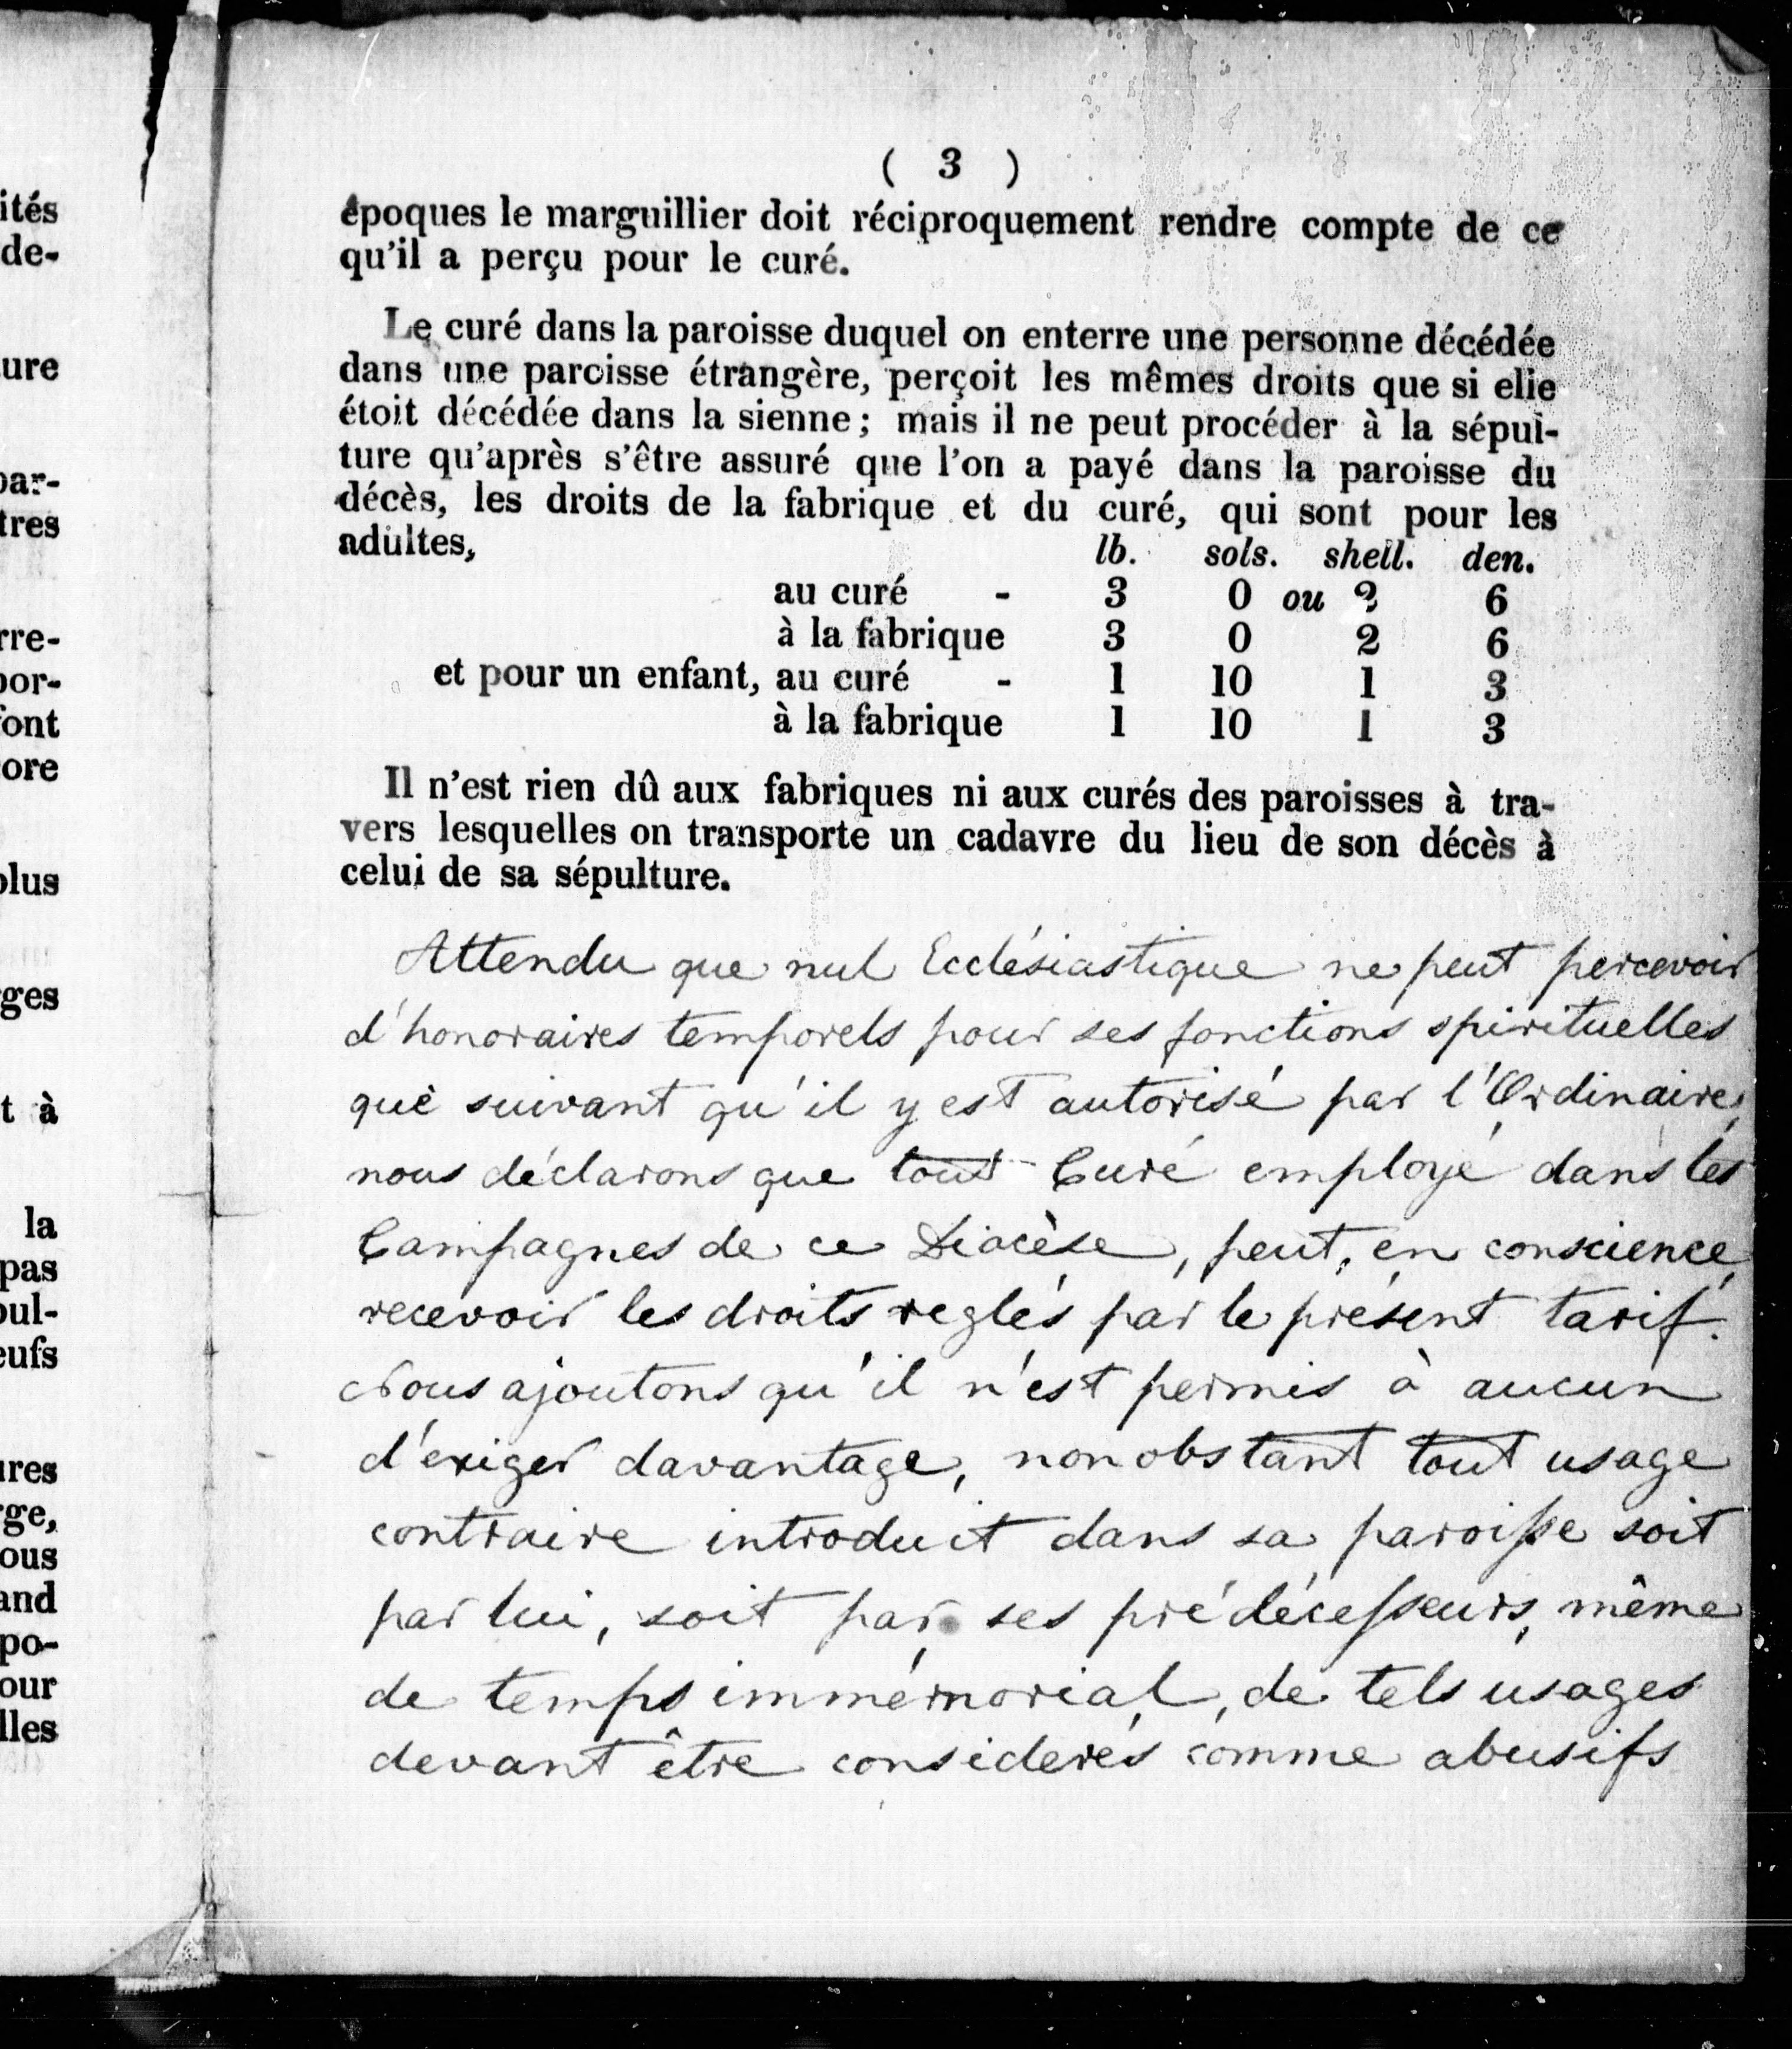 ités
de-
ure
par-
tres
rre-
por-
font
ore
plus
rges
t à
la
pas
oul-
eufs
ures
rge,
ous
and
po-
our
lles
( 3 )
époques le marguillier doit réciproquement rendre compte de ce
qu'il a perçu pour le curé.
Le curé dans la paroisse duquel on enterre une personne décédée
dans une paroisse étrangère, perçoit les mêmes droits que si elle
étoit décédée dans la sienne; mais il ne peut procéder à la sépul-
ture qu'après s'être assuré que l'on a payé dans la paroisse du
décès, les droits de la fabrique et du curé, qui sont pour les
adultes,
lb. sols. shell. den.
au curé - 3 0 ou 2 6
à la fabrique 3 0 2 6
et pour un enfant, au curé - 1 10 1 3
à la fabrique 1 10 1 3
Il n'est rien dû aux fabriques ni aux curés des paroisses à tra-
vers lesquelles on transporte un cadavre du lieu de son décès à
celui de sa sépulture.
Attendu que nul Ecclésiastique ne peut percevoir
d'honoraires temporels pour ses fonctions spirituelles
que suivant qu'il y est autorisé par l'Ordinaire,
nous déclarons que tout Curé employé dans les
Campagnes de ce Diocèse, peut, en conscience,
recevoir les droits reglés par le présent tarif.
Nous ajoutons qu'il n'est permis à aucun
d'exiger davantage, nonobstant tout usage
contraire introduit dans sa paroisse soit
par lui, soit par ses prédécesseurs, même
de temps immémorial, de tels usages
devant être considerés comme abusifs